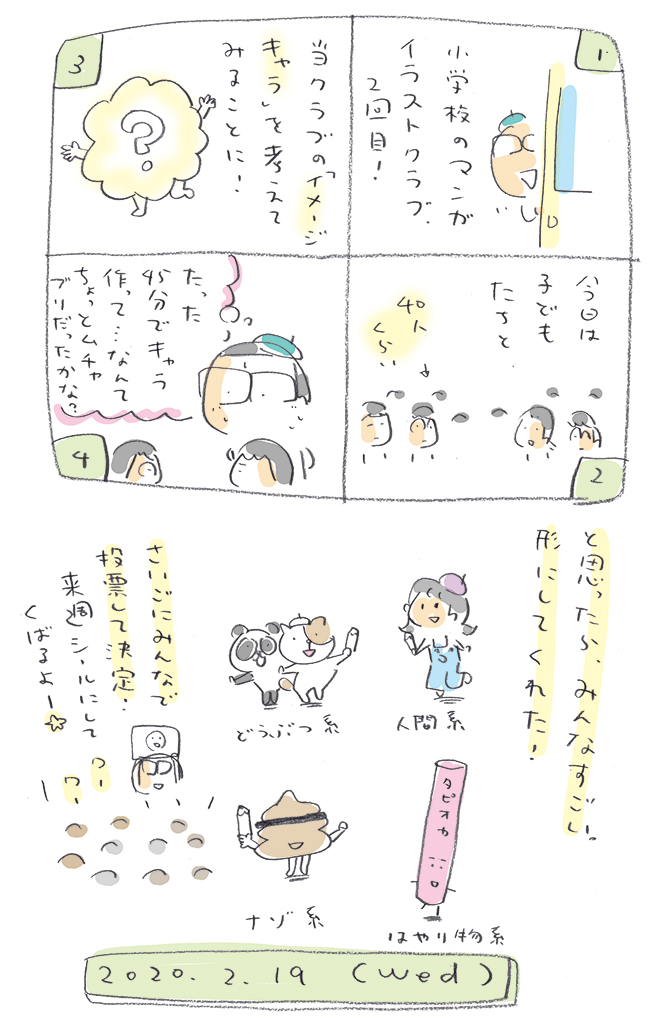 1
小学校のマンガ
イラストクラブ、
2回目!
今日は
子ども
たちと
40人
くらい
2
3
当クラブの「イメージ
キャラ」を考えて
みることに!
?
たった
45分でキャラ
作って…なんて
ちょっとムチャ
ブリだったかな?
4
と思ったら、みんなすごい。
形にしてくれた!
人間系
どうぶつ系
タピオカ
はやり物系
ナゾ系
さいごにみんなで
投票して決定!
来週シールにして
くばるよー☆
ワー
ワー
2020.2.19 (Wed)